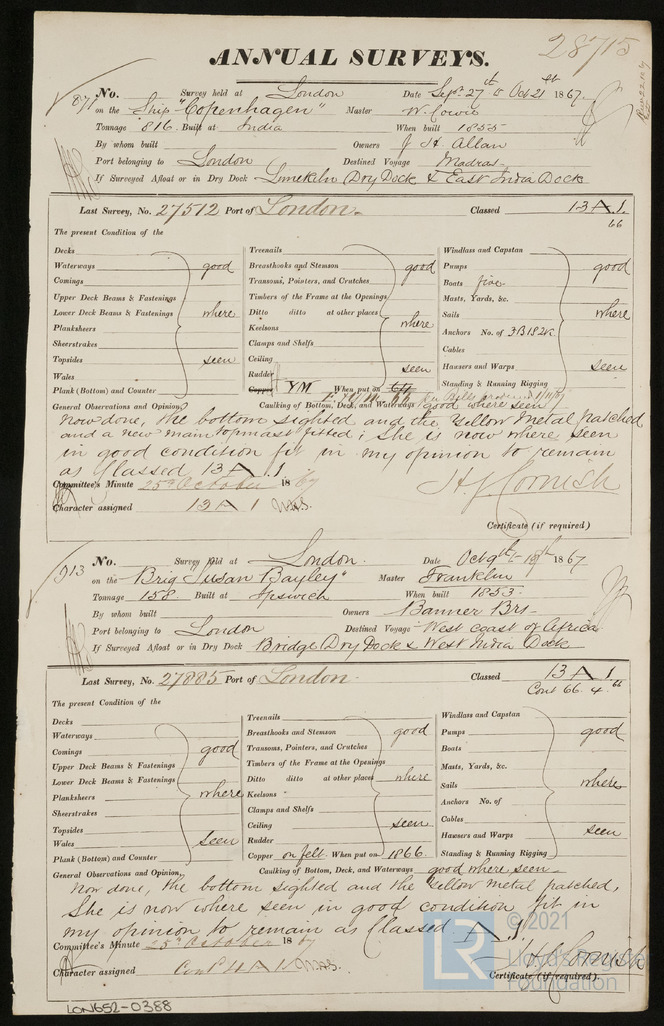 28715
ANNUAL SURVEYS.
871 No. Survey held at London Date Sept 27th to Oct 21st 1867.
on the Ship "Copenhagen" Master W. Cowie
Tonnage 816. Built at India When built 1855
By whom built Owners J H. Allan
Port belonging to London Destined Voyage Madras
If Surveyed Afloat or in Dry Dock Limekiln Dry Dock & East India Dock
Last Survey, No. 27512 Port of London. Classed 13 A 1.
66
The present Condition of the
Decks
Waterways good
Comings
Upper Deck Beams & Fastenings
Lower Deck Beams & Fastenings where
Planksheers
Sheerstrakes
Topsides seen
Wales
Plank (Bottom) and Counter
Treenails
Breasthooks and Stemson good
Transoms, Pointers, and Crutches
Timbers of the Frame at the Openings
Ditto ditto at other places
Keelsons where
Clamps and Shelfs
Ceiling
Rudder seen
Copper YM When put on
Windlass and Capstan
Pumps good
Boats five
Masts, Yards, &c.
Sails where
Anchors No. of 3B 1S 2K.
Cables
Hawsers and Warps seen
Standing & Running Rigging
General Observations and Opinion, Caulking of Bottom, Deck, and Waterways good where seen
Now done, the bottom sighted and the Yellow Metal patched
and a new main topmast fitted; She is now where seen
in good condition fit in my opinion to remain
as Classed 13 A .1
Committee's Minute 25th October 1867
H J Cornish
Character assigned 13 A 1
Certificate (if required)
913 No. Survey held at London. Date Oct 9th 1867
on the Brig "Susan Bayley" Master Franklin
Tonnage 158 Built at Ipswich When built 1853.
By whom built Owners Banner Brs
Port belonging to London Destined Voyage West Coast of Africa
If Surveyed Afloat or in Dry Dock Bridge Dry Dock & West India Dock
Last Survey, No. 27885 Port of London. Classed 13 A 1
Cont 66. 4. 66
The present Condition of the
Decks
Waterways
Comings good
Upper Deck Beams & Fastenings
Lower Deck Beams & Fastenings
Planksheers where
Sheerstrakes
Topsides
Wales seen
Plank (Bottom) and Counter
Treenails
Breasthooks and Stemson good
Transoms, Pointers, and Crutches
Timbers of the Frame at the Openings
Ditto ditto at other places where
Keelsons
Clamps and Shelfs
Ceiling seen
Rudder
Copper on felt. When put on 1866.
Windlass and Capstan
Pumps good
Boats
Masts, Yards, &c.
Sails where
Anchors No. of
Cables
Hawsers and Warps seen
Standing & Running Rigging
General Observations and Opinion, Caulking of Bottom, Deck, and Waterways good where seen
Now done, the bottom sighted and the Yellow Metal patched,
She is now where seen in good condition fit in
my opinion to remain as Classed A 1.
Committee's Minute 25th October 1867
H J Cornish
Character assigned Cont 4 A 1
Certificate (if required).
LR © 2021
Lloyd's Register
Foundation
LON652-0388